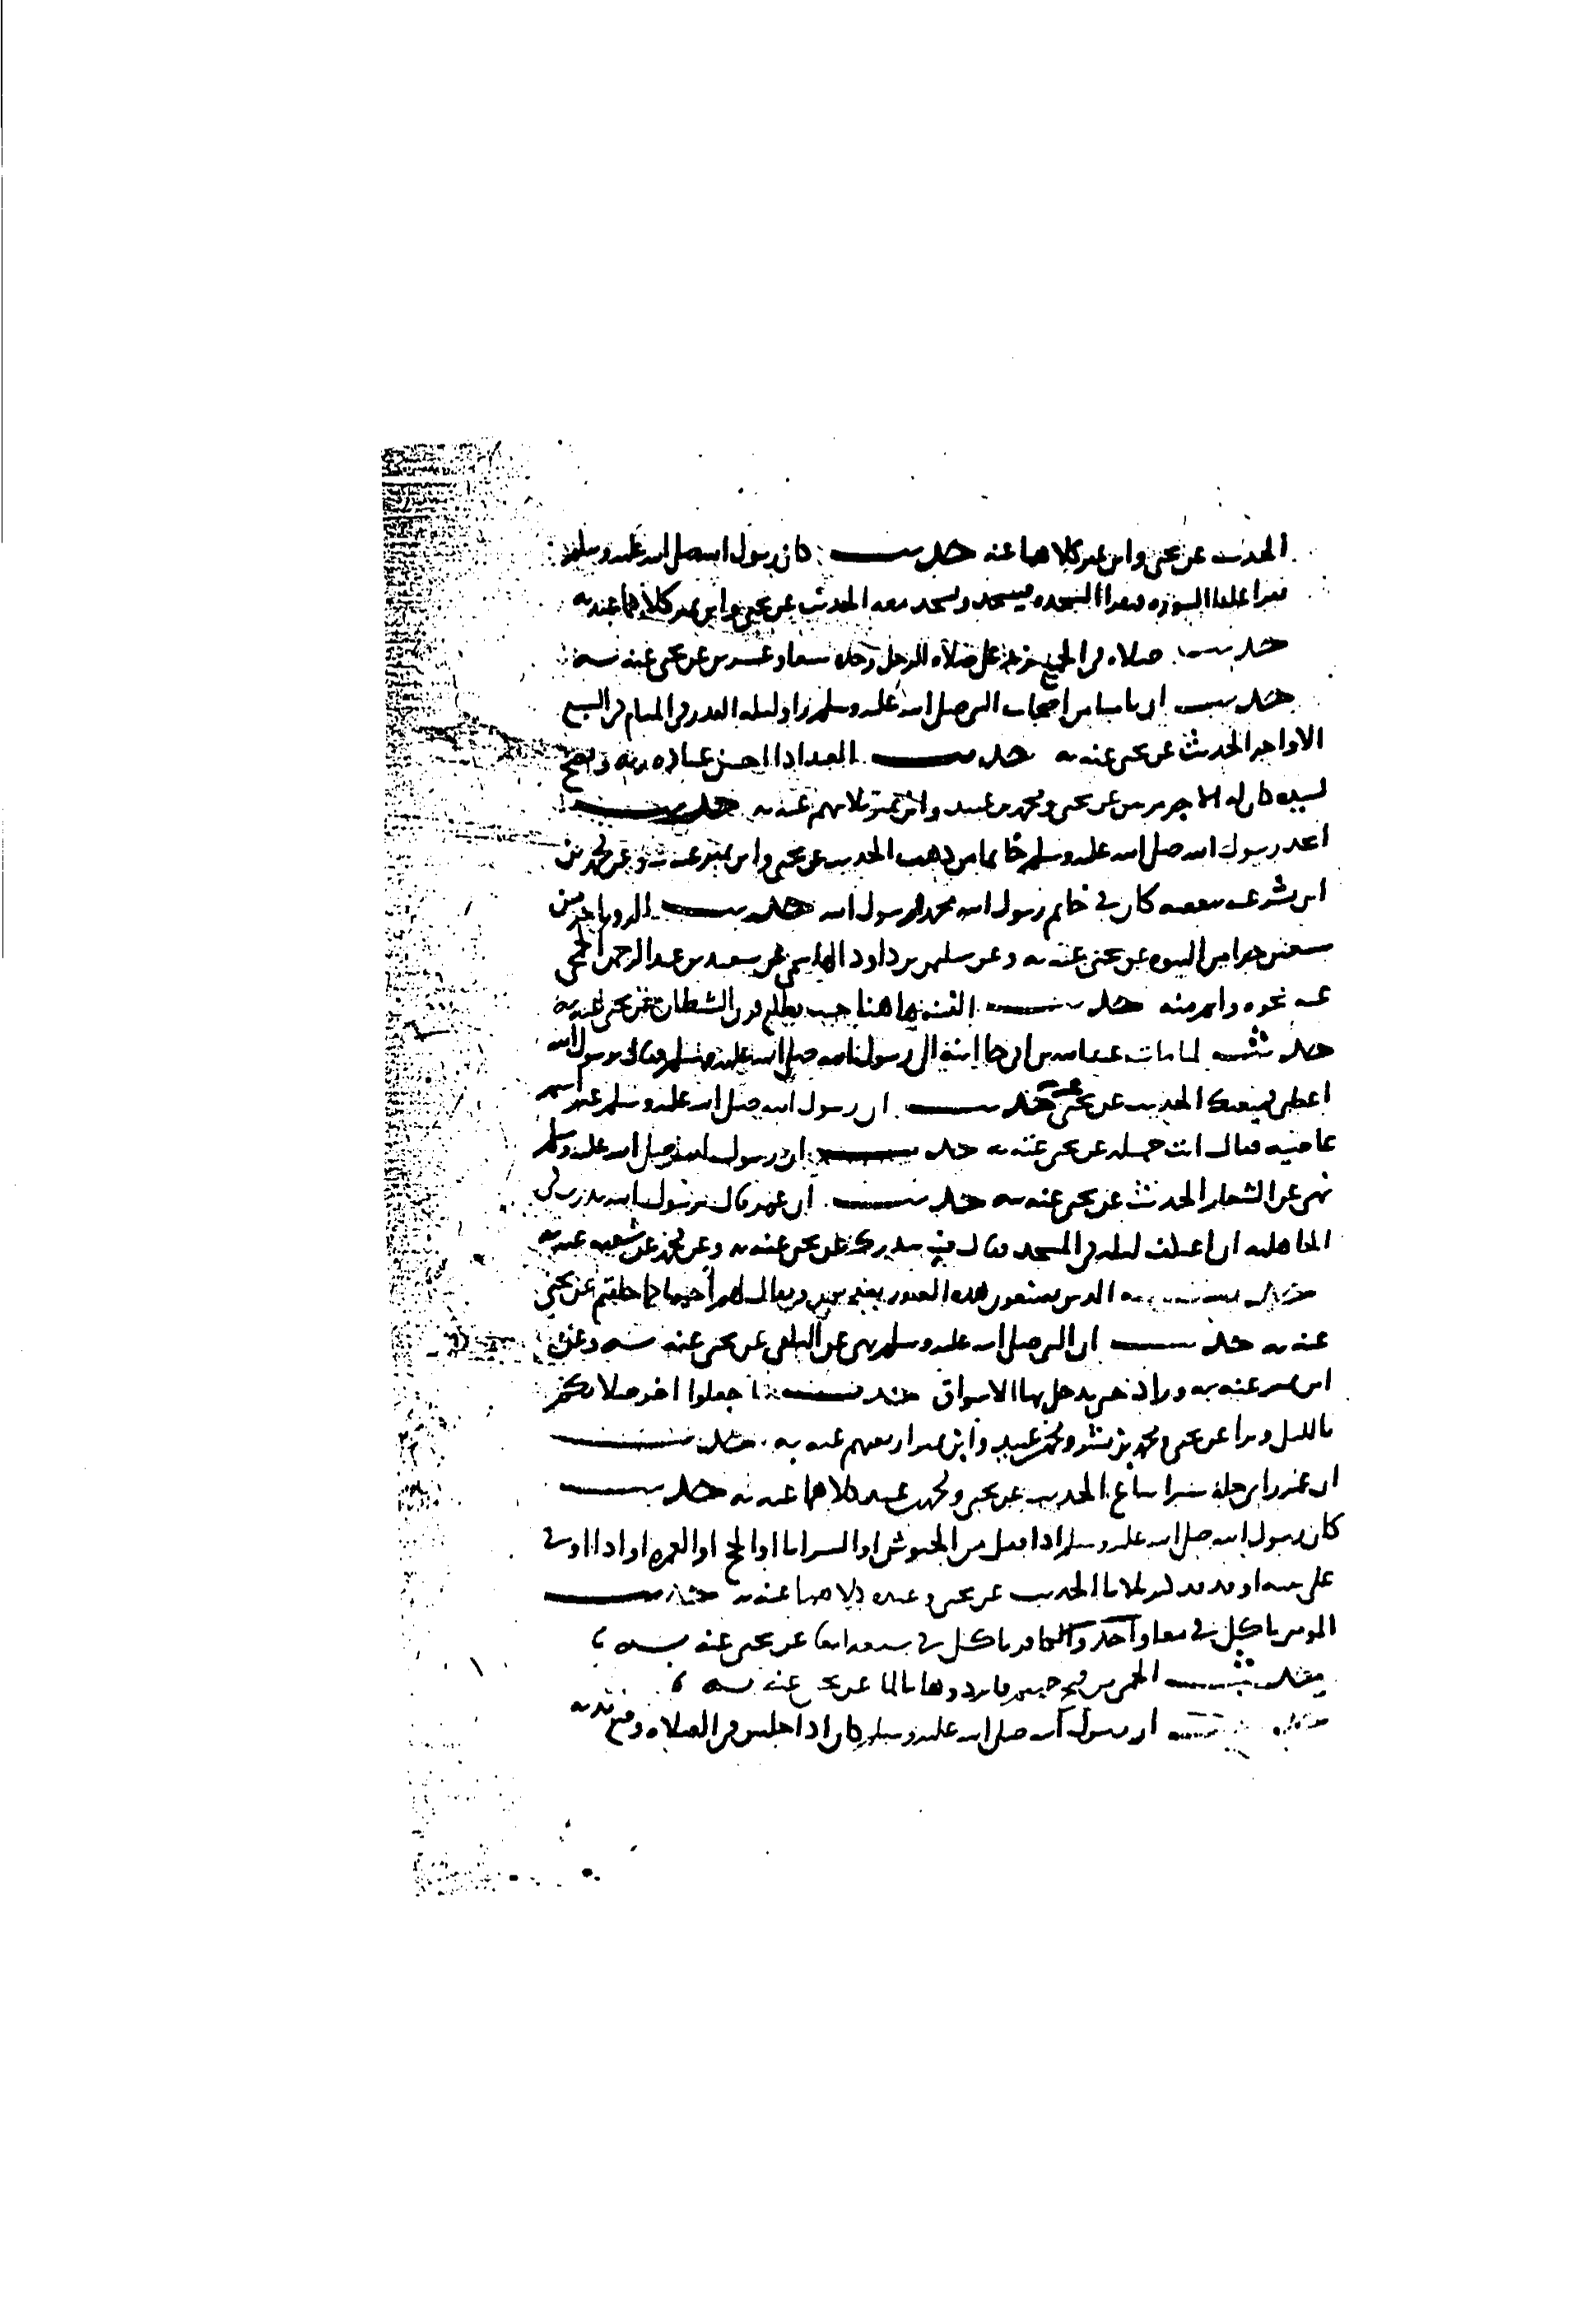 الحديث عن يحيى وابن نمير كلاهما عنه حديث كان رسول الله صلى الله عليه وسلم
يقرا علينا السورة فيقرا السجدة فيسجد ونسجد معه الحديث عن يحيى وابن نمير كلاهما عنه به
حديث صلاة في الجميع تزيد على صلاة الرجل وحده سبعا وعشرين عن يحيى عنه به
حديث ان ناسا من اصحاب النبي صلى الله عليه وسلم راوا ليلة القدر في المنام في السبع
الاواخر الحديث عن يحيى عنه به حديث العبد اذا احسن عبادة ربه ونصح
لسيده كان له الاجر مرتين عن يحيى ومحمد بن عبيد وابن نمير ثلاثهم عنه به حديث
اتخذ رسول الله صلى الله عليه وسلم خاتما من ذهب الحديث عن يحيى وابن نمير عنه به وعن محمد بن
بشر عنه ببعضه كان في خاتم رسول الله محمد رسول الله حديث الرويا جزء من
سبعين جزا من النبوة عن يحيى عنه به وعن سليمن بن داود الهاشمي عن سعيد بن عبد الرحمن الجمحي
عنه نحوه واتم منه حديث الفتنة هاهنا حيث يطلع قرن الشيطان عن يحيى عنه به
حديث لما مات عبد الله بن ابي جا ابنه الى رسول الله صلى الله عليه وسلم فقال يا رسول الله
اعطني قميصك الحديث عن يحيى عنه حديث ان رسول الله صلى الله عليه وسلم غير اسم
عاصية فقال انت جميلة عن يحيى عنه به حديث ان رسول الله صلى الله عليه وسلم
نهى عن الشغار الحديث عن يحيى عنه به حديث ان عمر قال يا رسول الله نذرت في
الجاهلية ان اعتكف ليلة في المسجد فقال ف بنذرك عن يحيى عنه به وعن محمد عن شعبة عنه به
حديث الذين يصنعون هذه الصور يعذبون ويقال لهم احيوا ما خلقتم عن يحيى
عنه به حديث ان النبي صلى الله عليه وسلم نهى عن التلقي عن يحيى عنه به وعن
ابن نمير عنه به وزاد حتى يدخل بها الاسواق حديث اجعلوا اخر صلاتكم
بالليل وترا عن يحيى ومحمد بن بشر ومحمد بن عبيد وابن نمير اربعتهم عنه به حديث
ان عمر راى حلة سيرا تباع الحديث عن يحيى ومحمد بن عبيد كلاهما عنه به حديث
كان رسول الله صلى الله عليه وسلم اذا قفل من الجيوش او السرايا او الحج او العمرة او اذا اوفى
على ثنية او فدفد كبر ثلاثا الحديث عن يحيى وعبده كلاهما عنه به حديث
المومن ياكل في معا واحد والكافر ياكل في سبعة امعا عن يحيى عنه به
حديث الحمى من فيح جهنم فابردوها بالما عن يحيى عنه به
حديث ان رسول الله صلى الله عليه وسلم كان اذا جلس في الصلاة وضع يديه